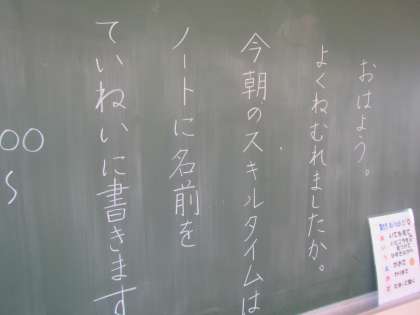 おはよう。
よくねむれましたか。
今朝のスキルタイムは
ノートに名前を
ていねいに書きます
○○